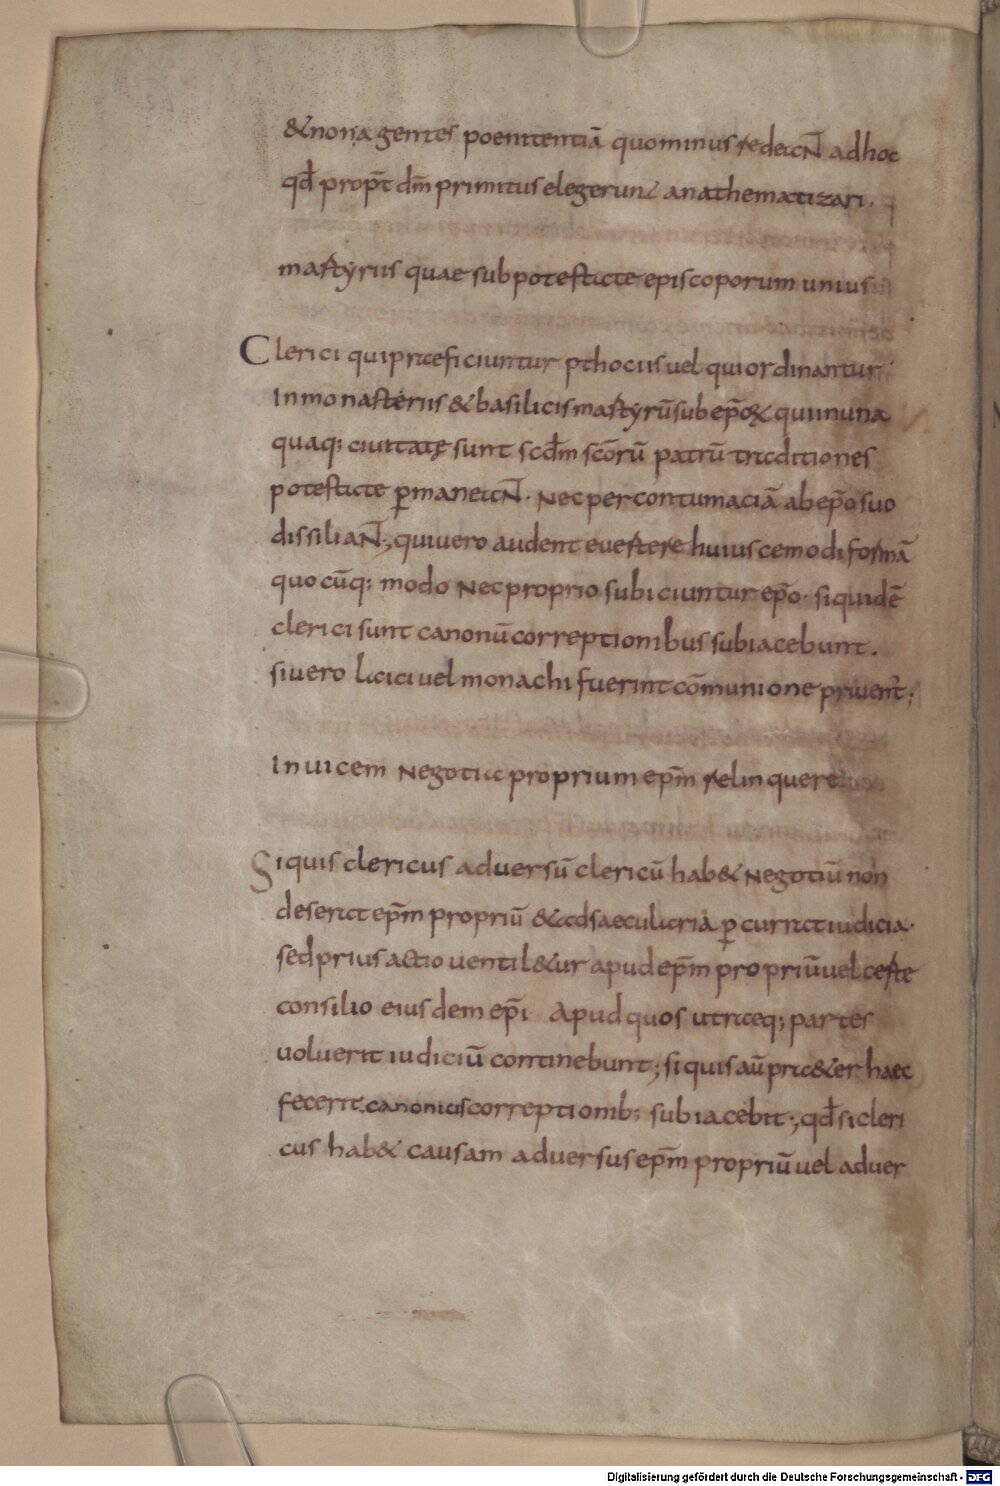 & non agentes poenitentiā quominus redeaN̄ ad hoc
qđ prop̄t dm̄ primitus elegerun& anathematizari.
martyriis quae sub potestate episcoporum unius
Clerici qui praeficiuntur pthociis uel qui ordinantur
In monasteriis & basilicis martyrū sub ep̄oꝝ qui in una
quaq; ciuitatę sunt scđm scōrū patrū traditiones
potestate ꝑmaneaN̄. Nec per contumaciā ab ep̄o suo
dissiliaN̄; qui uero audent euertere huiuscemodi formā
quocūq; modo Nec proprio subiciuntur ep̄o. siquidē
clerici sunt canonū correptionibus subiacebunt.
si uero laici uel monachi fuerint cōmunione priuent̄;
Inuicem Negotia proprium ep̄m relinquere
Siquis clericus aduersū clericū hab& Negotiū non
deserat ep̄m propriū & ad saecularia ꝑcurrat iudicia.
sed prius actio uentil&ur apud ep̄m propriū uel certe
consilio eiusdem ep̄i Apud quos utraeq; partes
uoluerit iudiciū continebunt; siquis aū pra&er haec
fecerit canonicis correptionib; subiacebit; qđ si cleri
cus hab& causam aduersus ep̄m propriū uel aduer
Digitalisierung gefördert durch die Deutsche Forschungsgemeinschaft - DFG